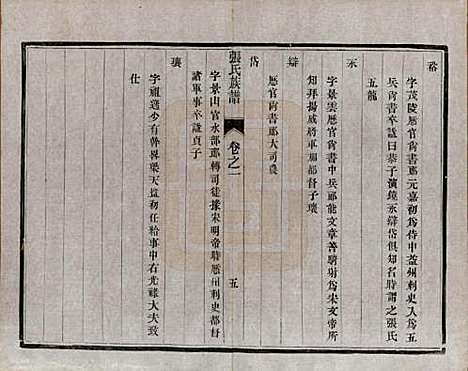 裕
字茂陵歷官尚書郎元嘉初爲侍中益州刺史入爲五
兵尚書卒諡曰恭子演鏡永辯岱俱知名時謂之張氏
五龍
永
字景雲歷官尚書中兵郎能文章善騎射爲宋文帝所
知拜揚威將軍兩都督子瓌
辯
歷官尚書郎大司農
岱
字景山官水部郎轉司徒掾宋明帝時歷州刺史都督
諸軍事卒諡貞子
張氏族譜
卷之一
五
瓌
字祖逸少有幹畧梁天監初任給事中右光祿大夫致
仕